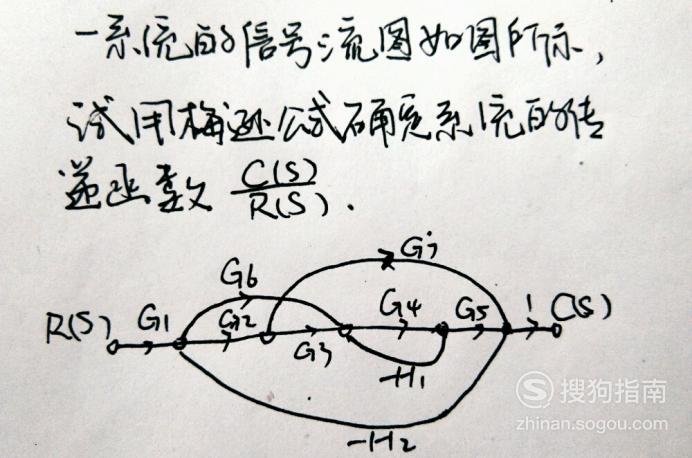 一系统的信号流图如图所示，
试用梅逊公式确定系统的传
递函数 C(S)/R(S).
G7
G6
R(S) G1 G2 G3 G4 G5 1 C(S)
-H1
-H2
搜狗指南
zhinan.sogou.com